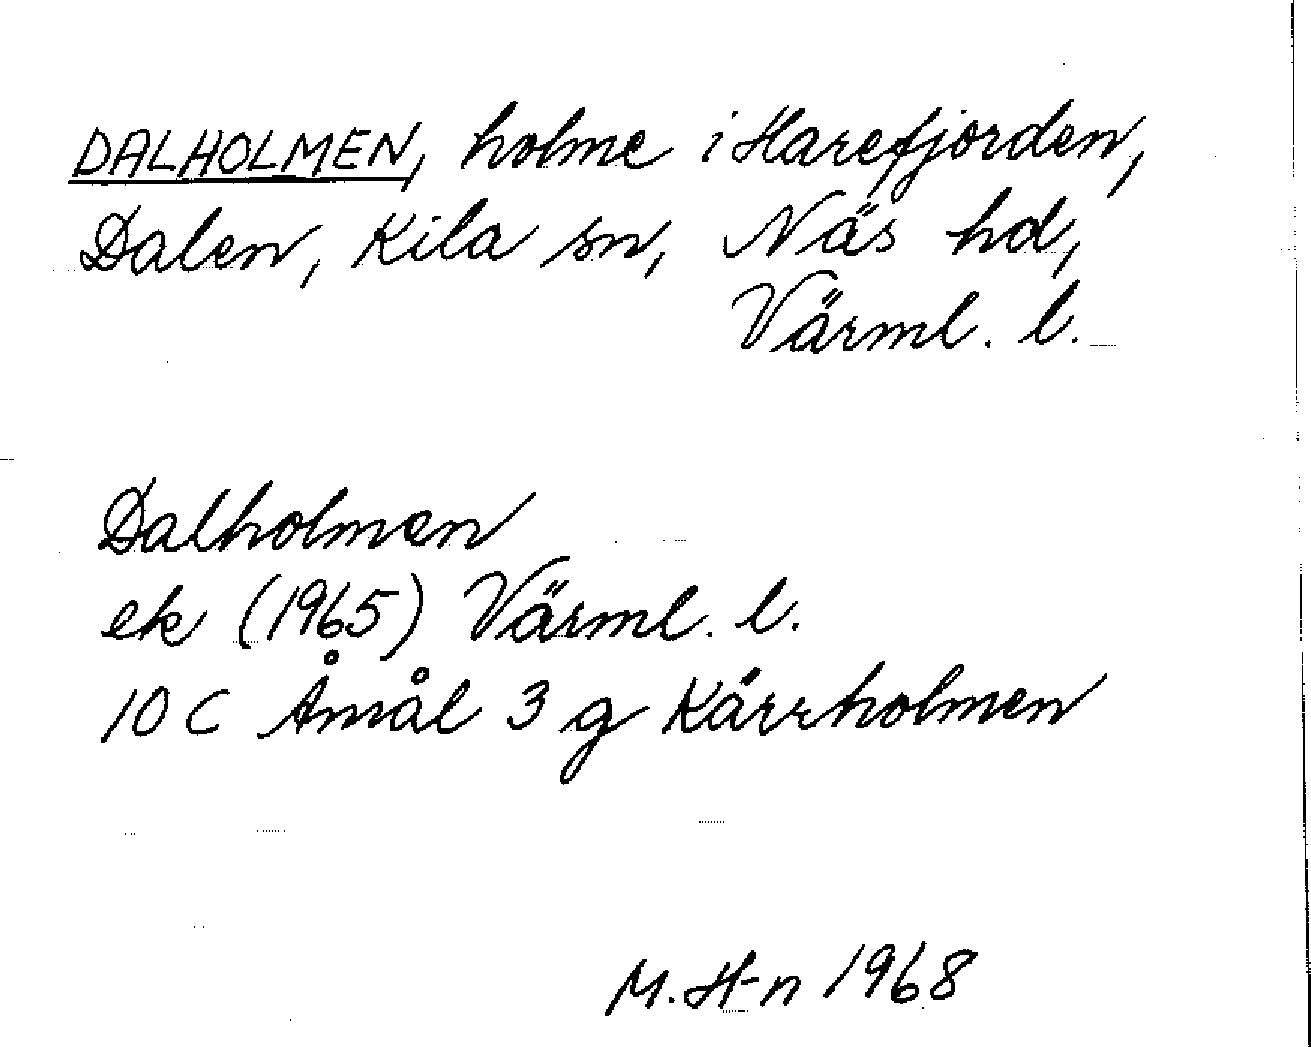 DALHOLMEN, holme i Harefjorden,
Dalen, Kila sn, Näs hd,
Värml. l.
Dalholmen
ek (1965) Värml. l.
10 C Åmål 3 g Kärrholmen
M. H-n 1968